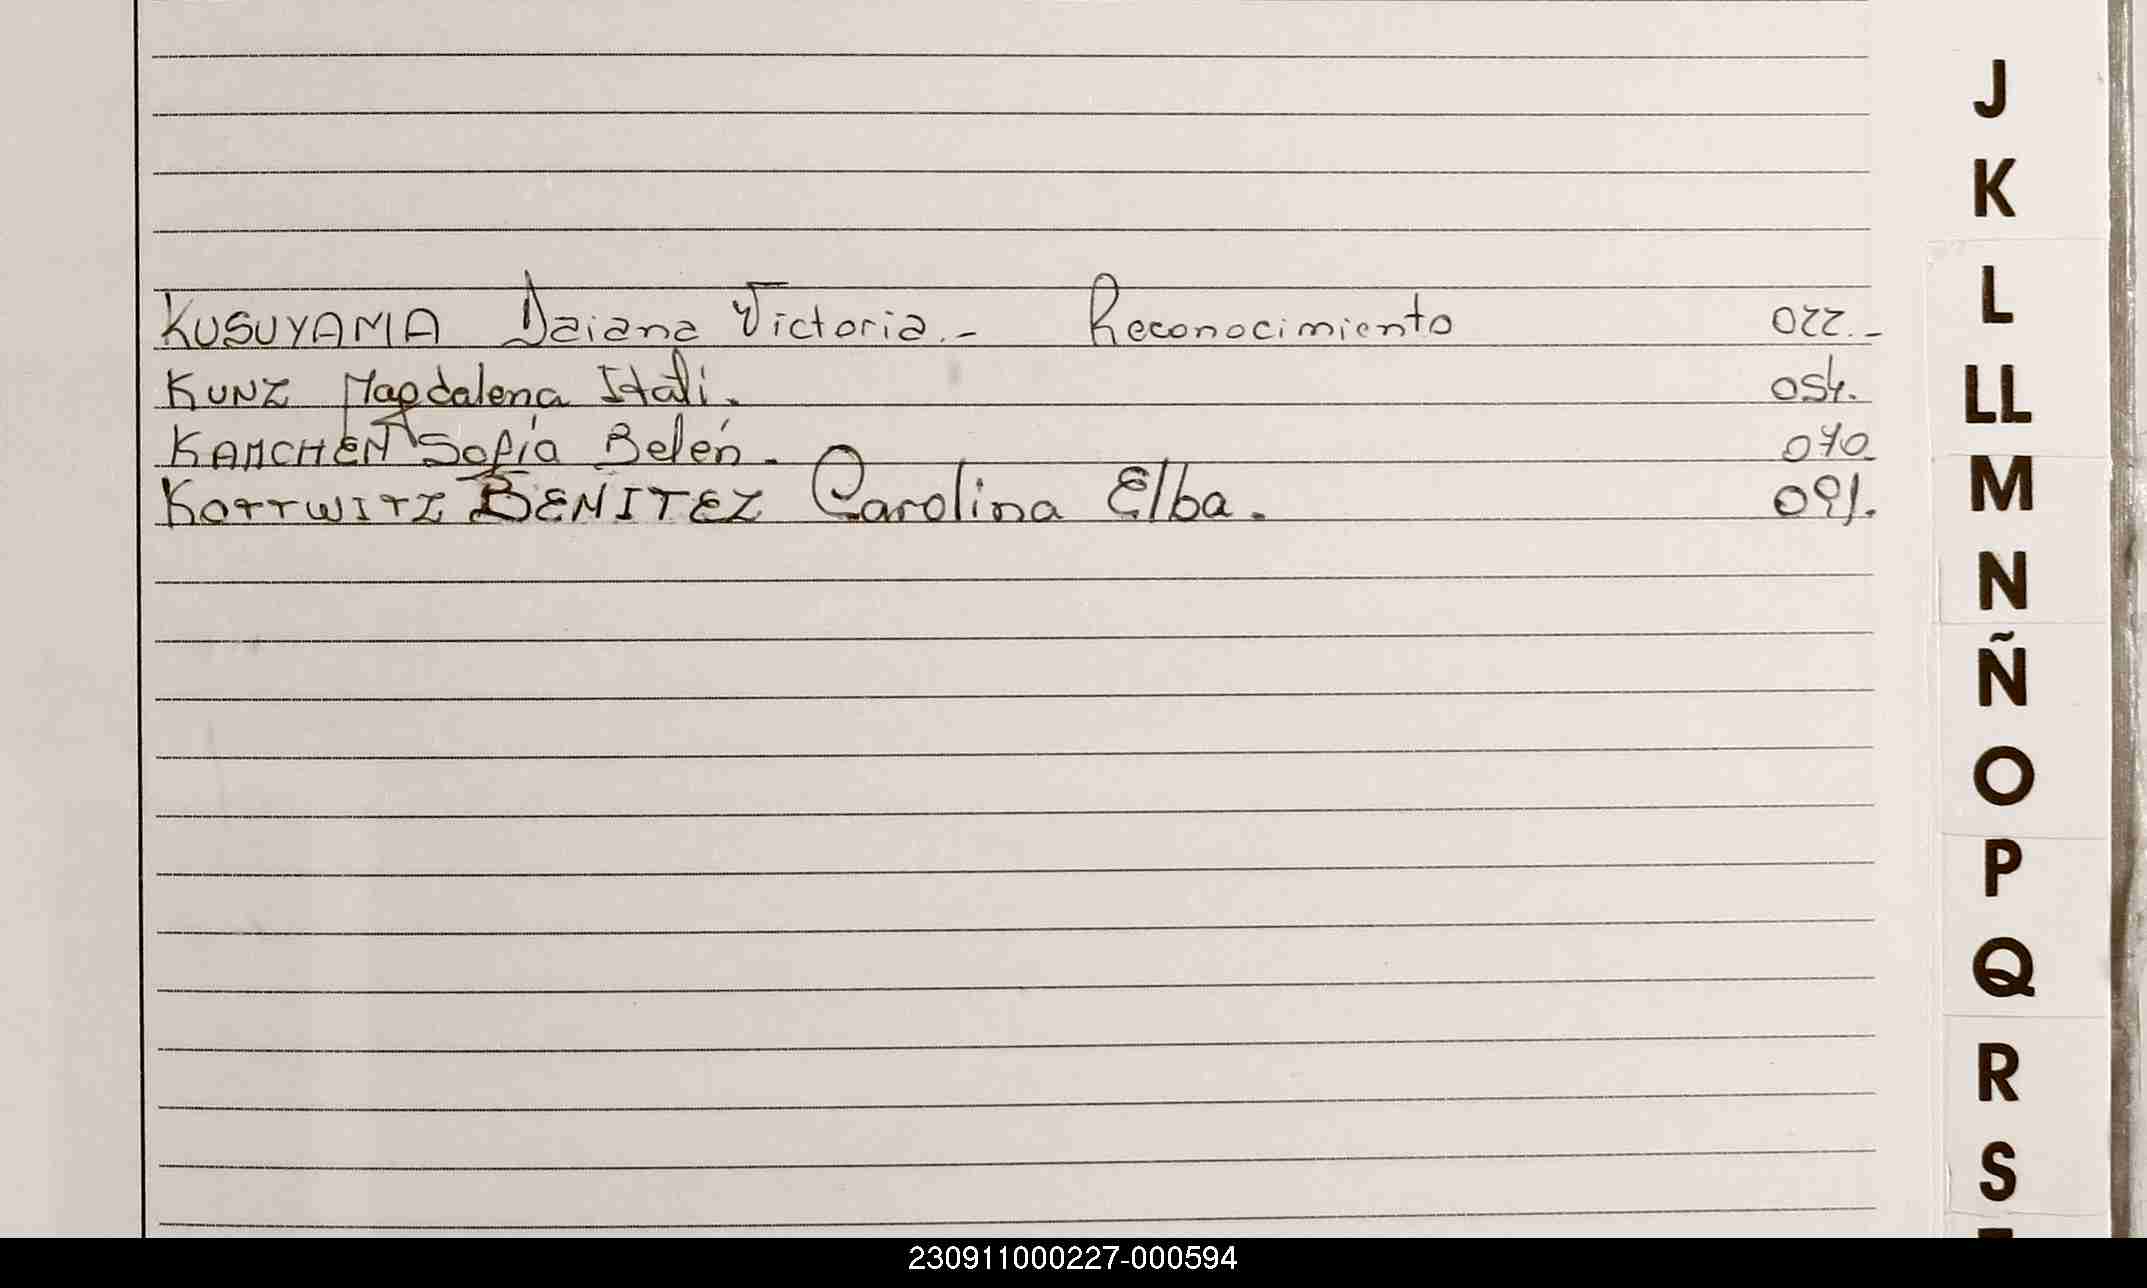 J
K
L
LL
M
N
Ñ
O
P
Q
R
S
KUSUYAMA Daiana Victoria.- Reconocimiento 022.-
KUNZ Magdalena Itatí. 054.
KAMCHEN Sofía Belén. 070
KOTTWITZ BENITEZ Carolina Elba. 091.
230911000227-000594